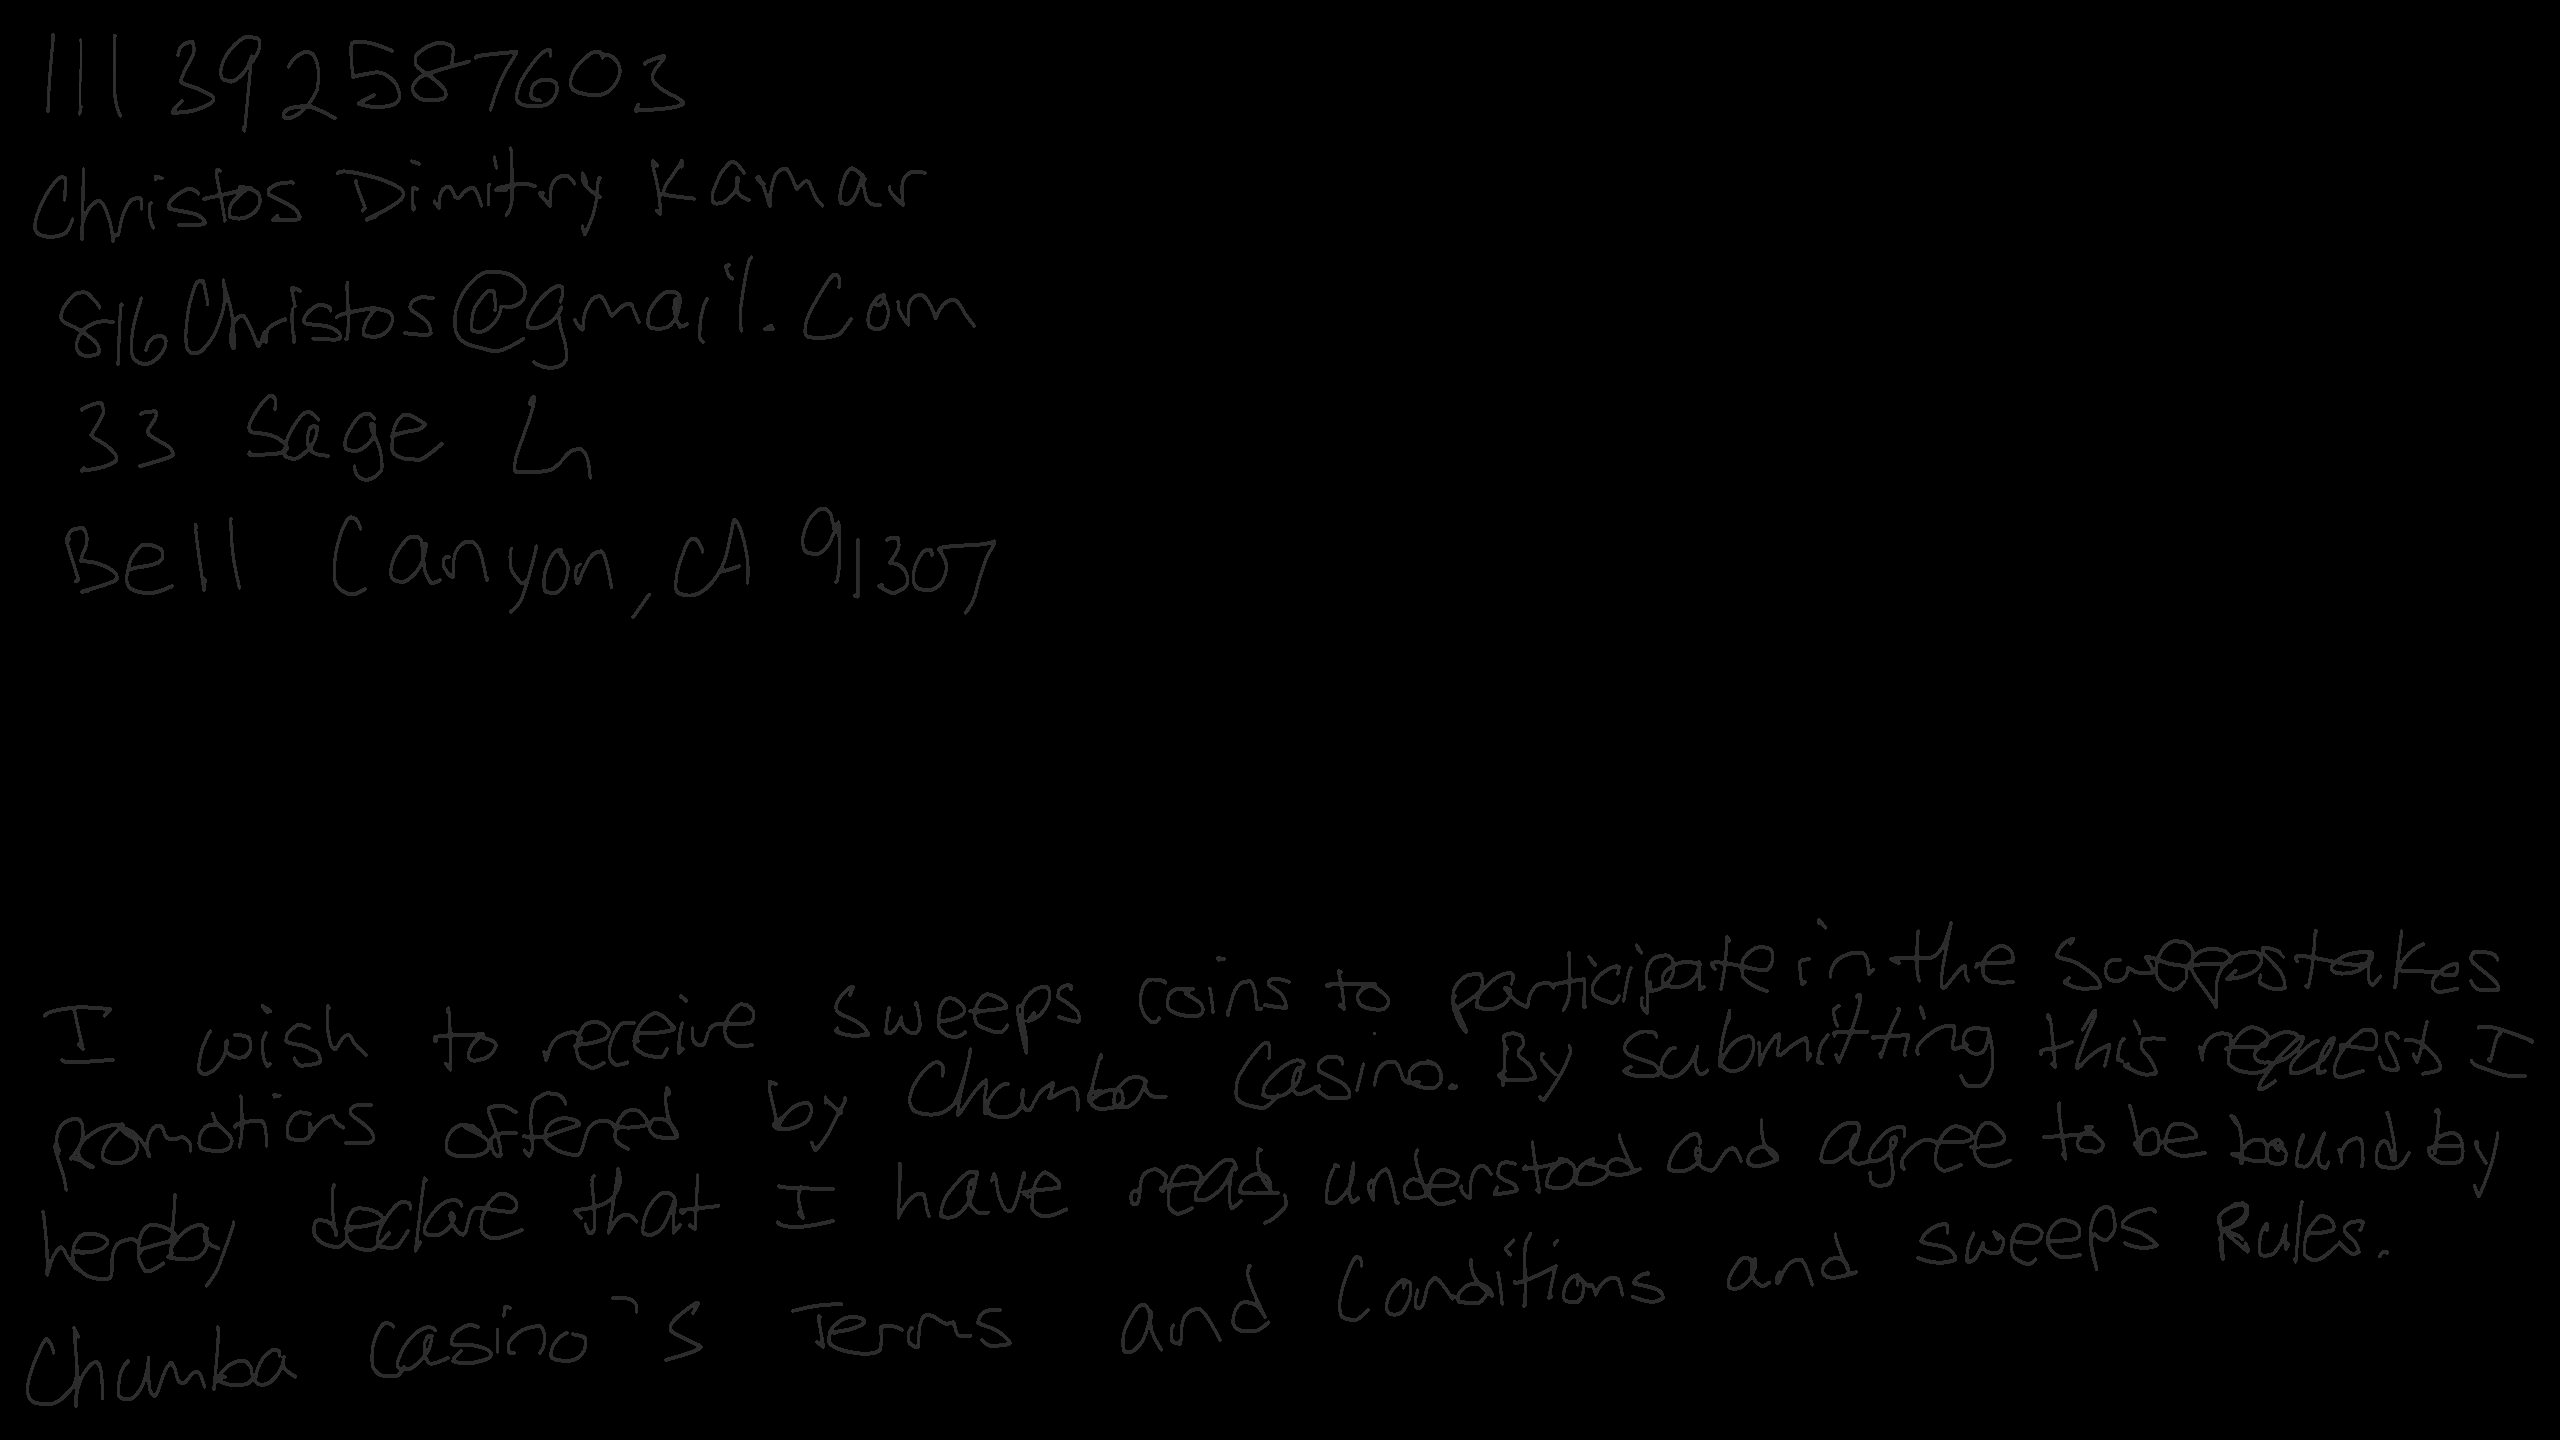 111 392587603
Christos Dimitry Kamar
816Christos@gmail.com
33 Sage Ln
Bell Canyon, CA 91307
I wish to receive sweeps coins to participate in the sweepstakes
promotions offered by Chumba Casino. By submitting this request, I
hereby declare that I have read, understood and agree to be bound by
Chumba Casino's Terms and Conditions and Sweeps Rules.